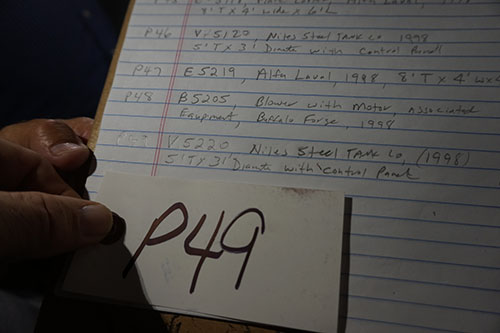 8' T X 4' wide x 6' L
P46 V-5120, Niles Steel Tank Co 1998
5' T X 3' Diameter with Control Panel
P47 E5219, Alfa Laval, 1998, 8' T x 4' w x
P48 B5205, Blower with Motor, associated
Equipment, Buffalo Forge, 1998
V5220 Niles Steel Tank Co, (1998)
5' T X 3' Diameter with Control Panel
P49